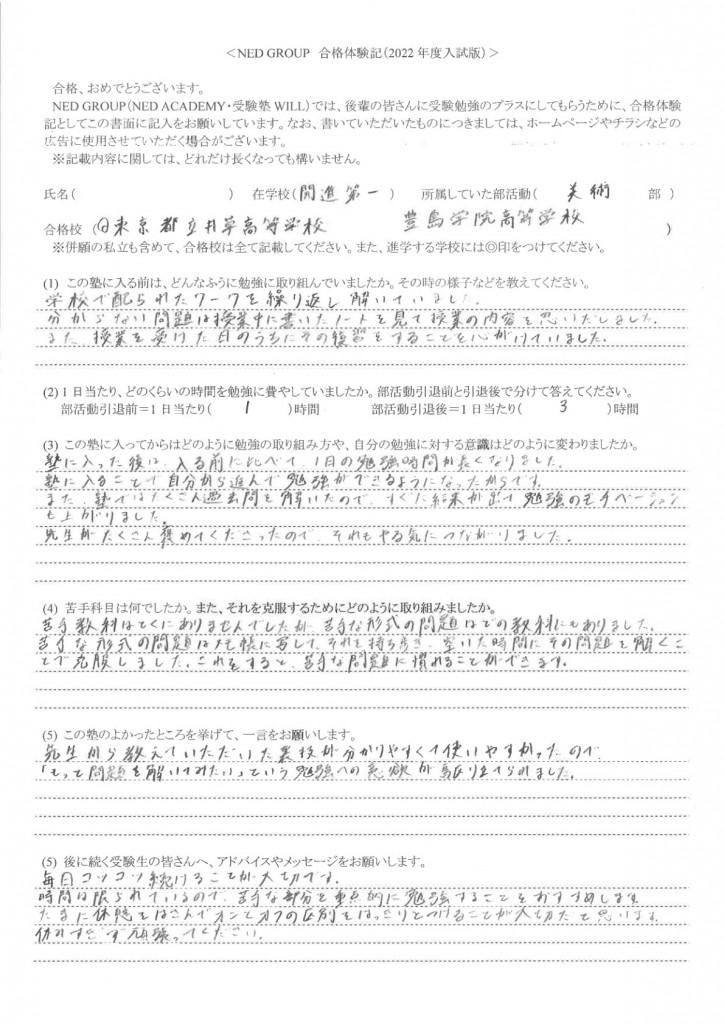 ＜NED GROUP 合格体験記（2022 年度入試版）＞
合格、おめでとうございます。
NED GROUP（NED ACADEMY・受験塾 WILL）では、後輩の皆さんに受験勉強のプラスにしてもらうために、合格体験
記としてこの書面に記入をお願いしています。なお、書いていただいたものにつきましては、ホームページやチラシなどの
広告に使用させていただく場合がございます。
※記載内容に関しては、どれだけ長くなっても構いません。
氏名（　　　　　　　　　　） 在学校（開進第一） 所属していた部活動（ 美術 部 ）
合格校（◎東京都立井草高等学校　　豊島学院高等学校　　）
※併願の私立も含めて、合格校は全て記載してください。また、進学する学校には◎印をつけてください。
(1) この塾に入る前は、どんなふうに勉強に取り組んでいましたか。その時の様子などを教えてください。
学校で配られたワークを繰り返し解いていました。
分からない問題は授業中に書いたノートを見て授業の内容を思いだしました。
また、授業を受けた日のうちにその復習をすることを心がけていました。
(2) 1 日当たり、どのくらいの時間を勉強に費やしていましたか。部活動引退前と引退後で分けて答えてください。
部活動引退前＝1 日当たり（ 1 ）時間　　部活動引退後＝1 日当たり（ 3 ）時間
(3) この塾に入ってからはどのように勉強の取り組み方や、自分の勉強に対する意識はどのように変わりましたか。
塾に入った後は、入る前に比べて、1日の勉強時間が長くなりました。
塾に入ることで自分から進んで勉強ができるようになったからです。
また、塾ではたくさん過去問を解いたので、すぐに結果が出て勉強のモチベーション
も上がりました。
先生がたくさん褒めてくださったので、それもやる気につながりました。
(4) 苦手科目は何でしたか。また、それを克服するためにどのように取り組みましたか。
苦手教科はとくにありませんでしたが、苦手な形式の問題はどの教科にもありました。
苦手な形式の問題はメモ帳に写して、それを持ち歩き、空いた時間にその問題を解くこ
とで克服しました。これをすると、苦手な問題に慣れることができます。
(5) この塾のよかったところを挙げて、一言をお願いします。
先生から教えていただいた裏技が分かりやすくて使いやすかったので、
「もっと問題を解いてみたい」という勉強への意欲が駆り立てられました。
(5) 後に続く受験生の皆さんへ、アドバイスやメッセージをお願いします。
毎日コツコツ続けることが大切です。
時間は限られているので、苦手な部分を重点的に勉強することをおすすめします。
たまに休憩をはさんでオンとオフの区別をはっきりとつけることが大切だと思います。
休みすぎず頑張ってください。